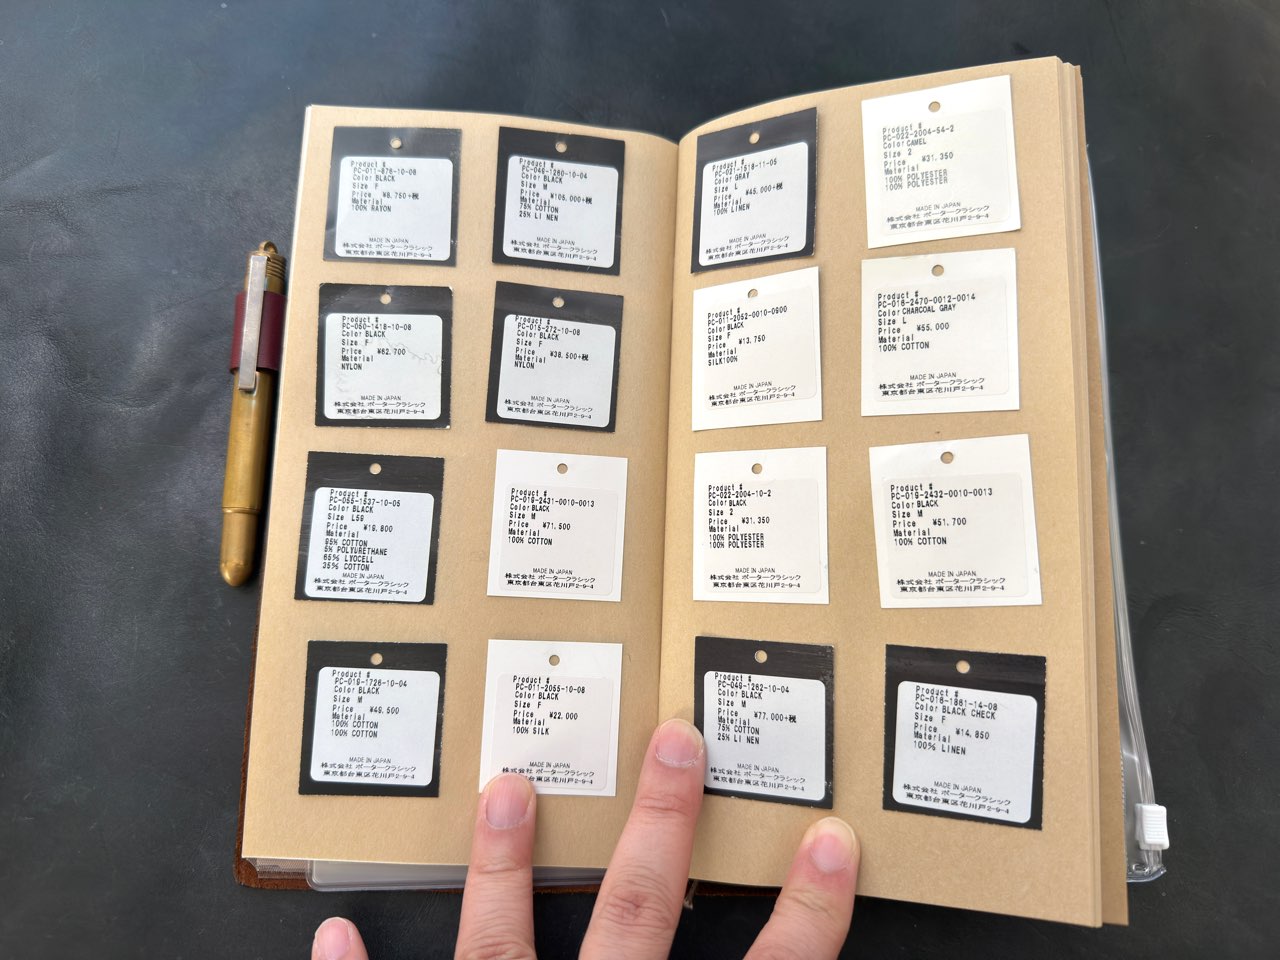 Product #
PC-011-878-10-08
Color BLACK
Size F
Price ¥8,750+税
Material
100% RAYON
MADE IN JAPAN
株式会社 ポータークラシック
東京都台東区花川戸2-9-4
Product #
PC-049-1260-10-04
Color BLACK
Size M
Price ¥105,000+税
Material
75% COTTON
25% LINEN
MADE IN JAPAN
株式会社 ポータークラシック
東京都台東区花川戸2-9-4
Product #
PC-050-1418-10-08
Color BLACK
Size F
Price ¥62,700
Material
NYLON
MADE IN JAPAN
株式会社 ポータークラシック
東京都台東区花川戸2-9-4
Product #
PC-015-272-10-08
Color BLACK
Size F
Price ¥38,500+税
Material
NYLON
MADE IN JAPAN
株式会社 ポータークラシック
東京都台東区花川戸2-9-4
Product #
PC-055-1537-10-05
Color BLACK
Size L59
Price ¥19,800
Material
95% COTTON
5% POLYURETHANE
65% LYOCELL
35% COTTON
MADE IN JAPAN
株式会社 ポータークラシック
東京都台東区花川戸2-9-4
Product #
PC-019-2431-0010-0013
Color BLACK
Size M
Price ¥71,500
Material
100% COTTON
MADE IN JAPAN
株式会社 ポータークラシック
東京都台東区花川戸2-9-4
Product #
PC-019-1726-10-04
Color BLACK
Size M
Price ¥49,500
Material
100% COTTON
100% COTTON
MADE IN JAPAN
株式会社 ポータークラシック
東京都台東区花川戸2-9-4
Product #
PC-011-2055-10-08
Color BLACK
Size F
Price ¥22,000
Material
100% SILK
MADE IN JAPAN
株式会社 ポータークラシック
台東区花川戸2-9-4
Product #
PC-021-1518-11-05
Color GRAY
Size L
Price ¥45,000+税
Material
100% LINEN
MADE IN JAPAN
株式会社 ポータークラシック
東京都台東区花川戸2-9-4
Product #
PC-022-2004-54-2
Color CAMEL
Size 2
Price ¥31,350
Material
100% POLYESTER
100% POLYESTER
MADE IN JAPAN
株式会社 ポータークラシック
東京都台東区花川戸2-9-4
Product #
PC-011-2052-0010-0900
Color BLACK
Size F
Price ¥13,750
Material
SILK100%
MADE IN JAPAN
株式会社 ポータークラシック
東京都台東区花川戸2-9-4
Product #
PC-018-2470-0012-0014
Color CHARCOAL GRAY
Size L
Price ¥55,000
Material
100% COTTON
MADE IN JAPAN
株式会社 ポータークラシック
東京都台東区花川戸2-9-4
Product #
PC-022-2004-10-2
Color BLACK
Size 2
Price ¥31,350
Material
100% POLYESTER
100% POLYESTER
MADE IN JAPAN
株式会社 ポータークラシック
東京都台東区花川戸2-9-4
Product #
PC-019-2432-0010-0013
Color BLACK
Size M
Price ¥51,700
Material
100% COTTON
MADE IN JAPAN
株式会社 ポータークラシック
東京都台東区花川戸2-9-4
Product #
PC-049-1262-10-04
Color BLACK
Size M
Price ¥77,000+税
Material
75% COTTON
25% LINEN
MADE IN JAPAN
株式会社 ポータークラシック
東京都台東区花川戸2-9-4
Product #
PC-016-1861-14-08
Color BLACK CHECK
Size F
Price ¥14,850
Material
100% LINEN
MADE IN JAPAN
株式会社 ポータークラシック
東京都台東区花川戸2-9-4